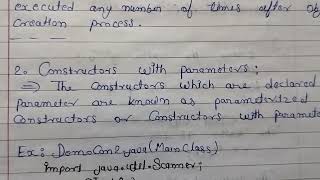 executed any number of times after ob
Creation process.
2. Constructors with parameters:
⇒ The Constructors which are declared
parameter are known as parameterized
Constructors or Constructors with paramet
Ex: DemoCon2.java (Main Class)
import java.util.Scanner;